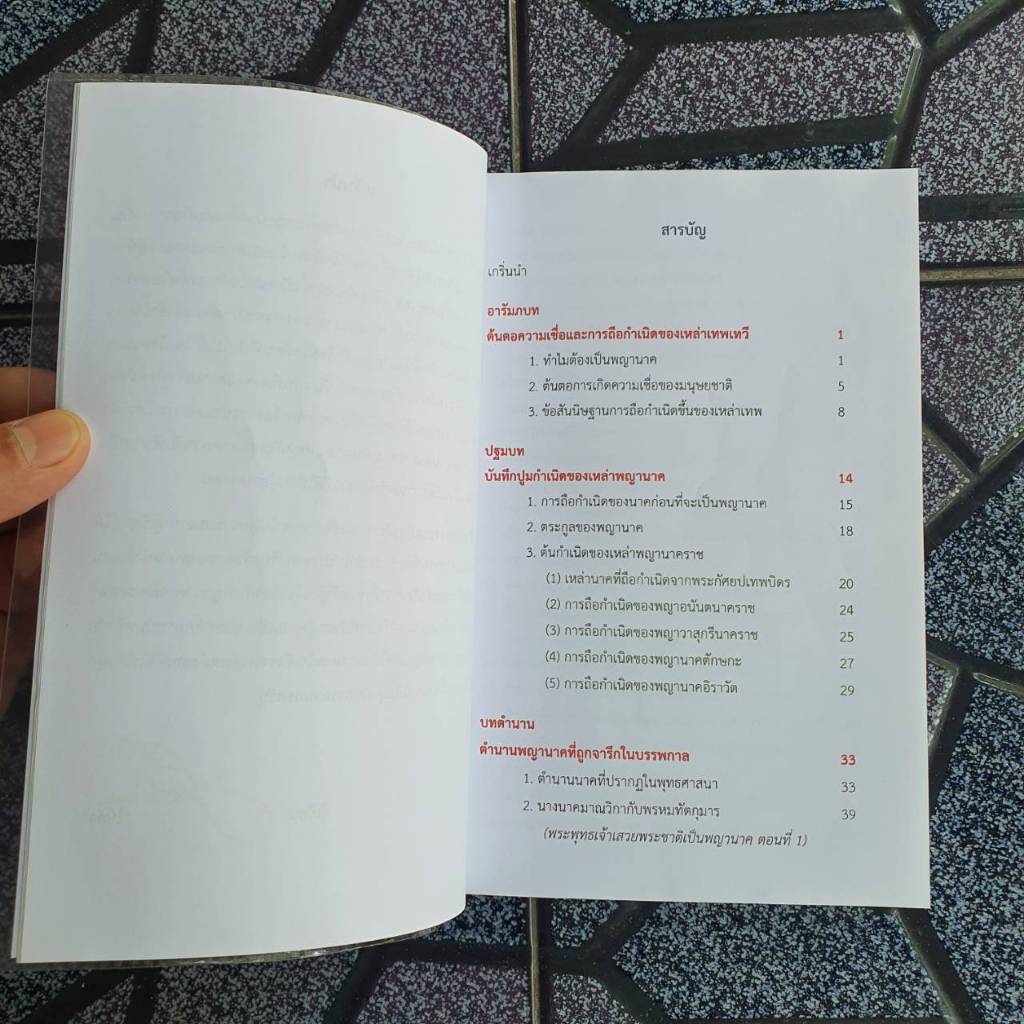 สารบัญ
เกริ่นนำ
อารัมภบท
ต้นตอความเชื่อและการถือกำเนิดของเหล่าเทพเทวี 1
1. ทำไมต้องเป็นพญานาค 1
2. ต้นตอการเกิดความเชื่อของมนุษยชาติ 5
3. ข้อสันนิษฐานการถือกำเนิดขึ้นของเหล่าเทพ 8
ปฐมบท
บันทึกปูมกำเนิดของเหล่าพญานาค 14
1. การถือกำเนิดของนาคก่อนที่จะเป็นพญานาค 15
2. ตระกูลของพญานาค 18
3. ต้นกำเนิดของเหล่าพญานาคราช
(1) เหล่านาคที่ถือกำเนิดจากพระกัศยปเทพบิดร 20
(2) การถือกำเนิดของพญาอนันตนาคราช 24
(3) การถือกำเนิดของพญาวาสุกรีนาคราช 25
(4) การถือกำเนิดของพญานาคตักษกะ 27
(5) การถือกำเนิดของพญานาคอิราวัต 29
บทตำนาน
ตำนานพญานาคที่ถูกจารึกในบรรพกาล 33
1. ตำนานนาคที่ปรากฏในพุทธศาสนา 33
2. นางนาคมาณวิกากับพรหมทัตกุมาร 39
(พระพุทธเจ้าเสวยพระชาติเป็นพญานาค ตอนที่ 1)